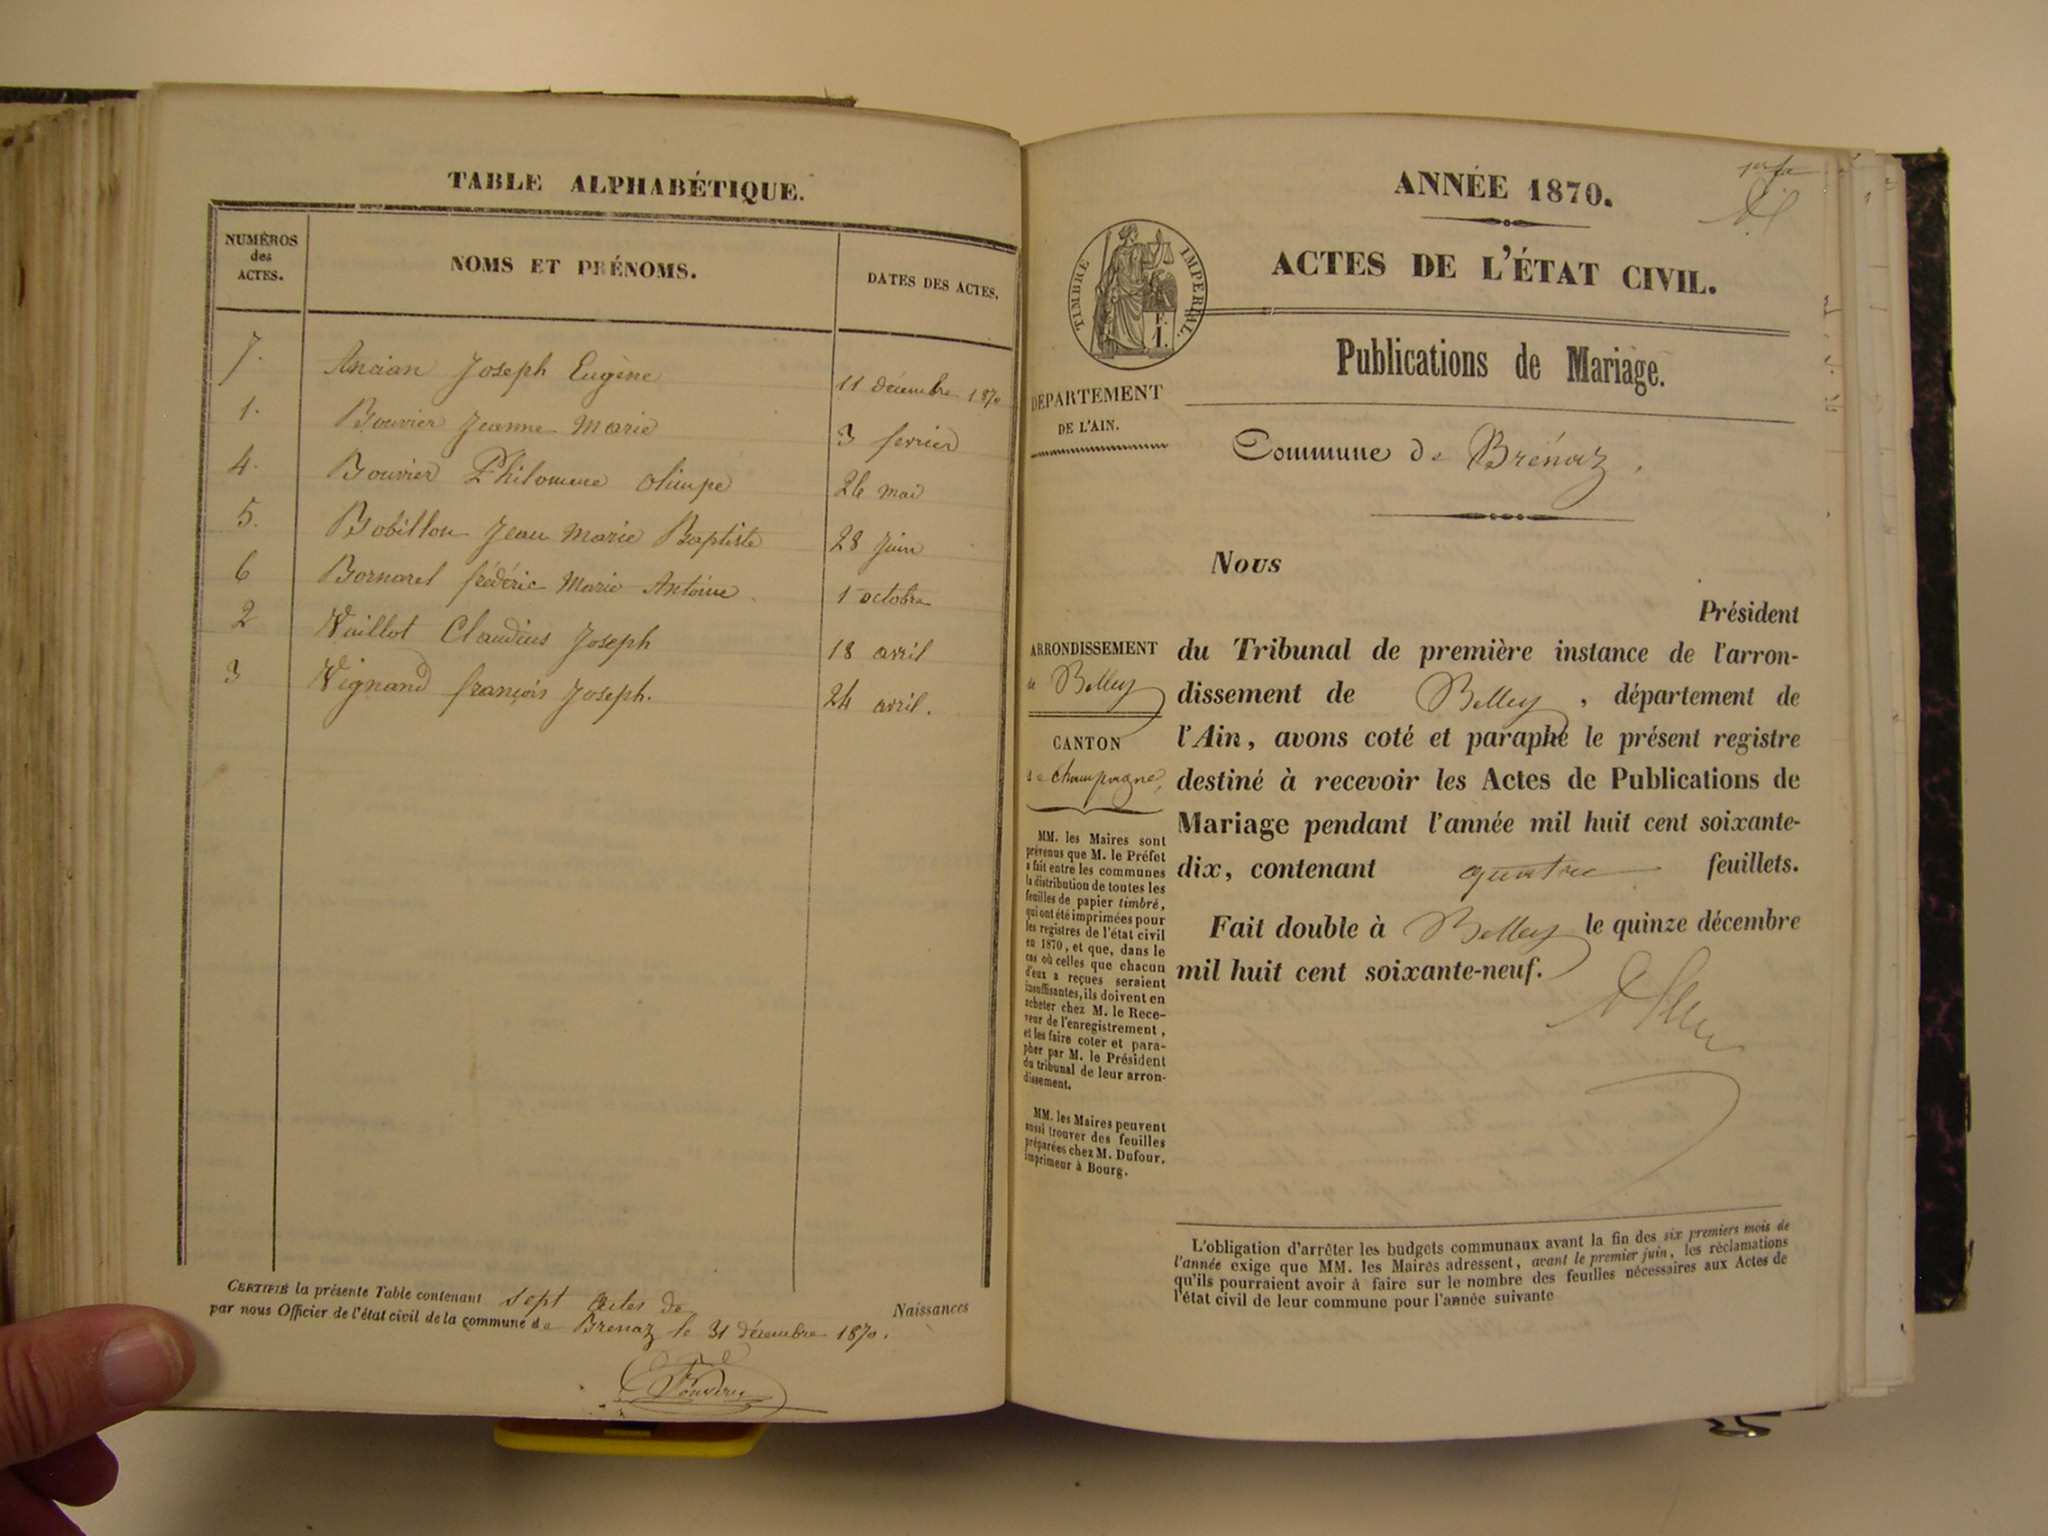 TABLE ALPHABÉTIQUE.
NUMÉROS des ACTES.
NOMS ET PRÉNOMS.
DATES DES ACTES.
7. Ancian Joseph Eugène 11 décembre 1870
1. Bouvier Jeanne Marie 3 fevrier
4. Bouvier Philomene Olimpe 26 mai
5. Bobillon Jean Marie Baptiste 28 Juin
6 Bornarel frédéric Marie Antoine 1 octobre
2 Vuillot Claudius Joseph 18 avril
3 Vignand françois Joseph. 24 avril.
CERTIFIÉ la présente Table contenant sept actes de Naissances
par nous Officier de l'état civil de la commune de Brenaz le 31 décembre 1870.
ANNÉE 1870.
ACTES DE L'ÉTAT CIVIL.
TIMBRE IMPÉRIAL.
Publications de Mariage.
DÉPARTEMENT
DE L'AIN.
Commune de Brénaz,
Nous
Président
ARRONDISSEMENT
de Belley
CANTON
de Champagne,
du Tribunal de première instance de l'arron-
dissement de Belley, département de
l'Ain, avons coté et paraphé le présent registre
destiné à recevoir les Actes de Publications de
Mariage pendant l'année mil huit cent soixante-
dix, contenant quatre feuillets.
Fait double à Belley le quinze décembre
mil huit cent soixante-neuf.
MM. les Maires sont
prévenus que M. le Préfet
a fait entre les communes
la distribution de toutes les
feuilles de papier timbré,
qui ont été imprimées pour
les registres de l'état civil
en 1870, et que, dans le
cas où celles que chacun
d'eux a reçues seraient
insuffisantes, ils doivent en
acheter chez M. le Rece-
veur de l'enregistrement,
et les faire coter et para-
pher par M. le Président
du tribunal de leur arron-
dissement.
MM. les Maires peuvent
aussi trouver des feuilles
préparées chez M. Dufour,
imprimeur à Bourg.
L'obligation d'arrêter les budgets communaux avant la fin des six premiers mois de
l'année exige que MM. les Maires adressent, avant le premier juin, les réclamations
qu'ils pourraient avoir à faire sur le nombre des feuilles nécessaires aux Actes de
l'état civil de leur commune pour l'année suivante